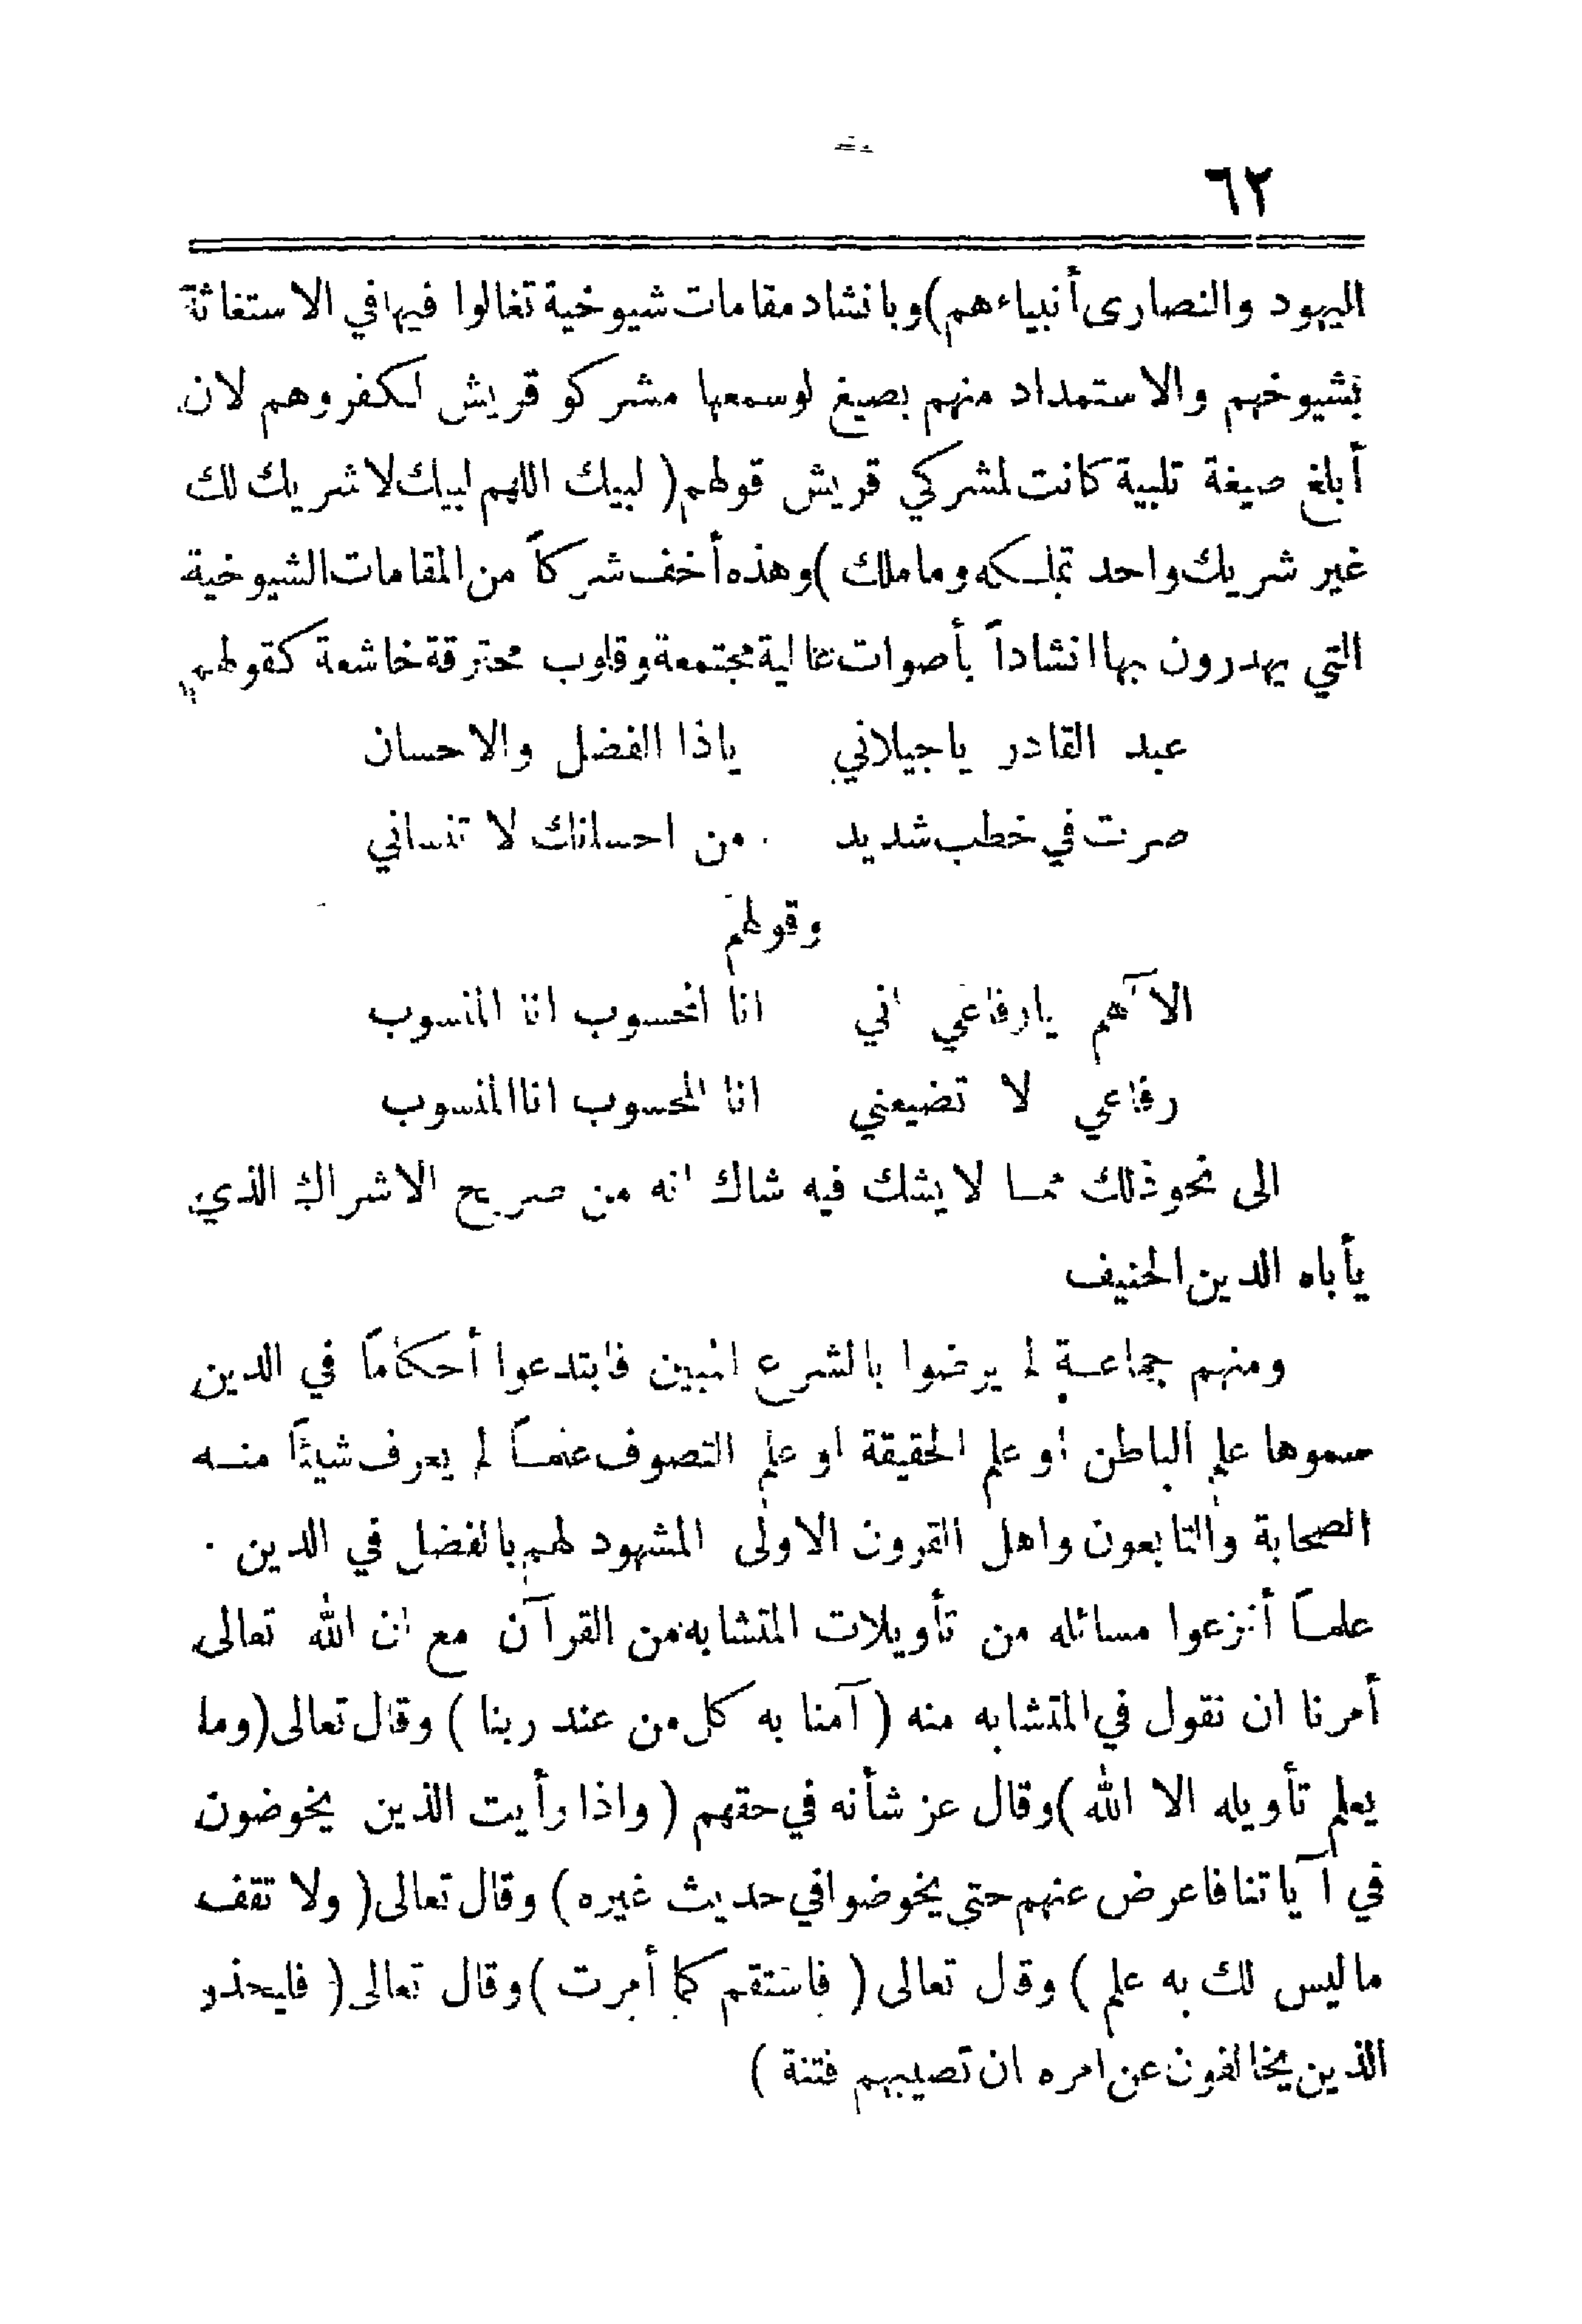 ٦٢
اليهود والنصارى أنبياءهم) وبانشاد مقامات شيوخية تغالوا فيها في الاستغاثة
بشيوخهم والاستمداد منهم بصيغ لو سمعها مشركو قريش لكفروهم لان
أبلغ صيغة تلبية كانت لمشركي قريش قولهم (لبيك اللهم لبيك لا شريك لك
غير شريك واحد تملكه وما ملك) وهذه أخف شركاً من المقامات الشيوخية
التي يهدرون بها انشاداً بأصوات عالية مجتمعة وقلوب محترقة خاشعة كقولهم
عبد القادر ياجيلاني ياذا الفضل والاحسان
صرت في خطب شديد من احسانك لا تنساني
وقولهم
الاآهم يارفاعي اني انا المحسوب انا المنسوب
رفاعي لا تضيعني انا المحسوب انا المنسوب
الى نحو ذلك مما لا يشك فيه شاك انه من صريح الاشراك الذي
يأباه الدين الحنيف
ومنهم جماعة لم يرضوا بالشرع المبين فابتدعوا أحكاماً في الدين
سموها علم الباطن او علم الحقيقة او علم التصوف علماً لم يعرف شيئاً منه
الصحابة والتابعون واهل القرون الاولى المشهود لهم بالفضل في الدين .
علماً أنزعوا مسائله من تأويلات المتشابه من القرآن مع ان الله تعالى
أمرنا ان نقول في المتشابه منه (آمنا به كل من عند ربنا) وقال تعالى (وما
يعلم تأويله الا الله) وقال عز شأنه في حقهم (واذا رأيت الذين يخوضون
في آياتنا فاعرض عنهم حتى يخوضوا في حديث غيره) وقال تعالى (ولا تقف
ما ليس لك به علم) وقال تعالى (فاستقم كما أمرت) وقال تعالى (فليحذر
الذين يخالفون عن امره ان تصيبهم فتنة)